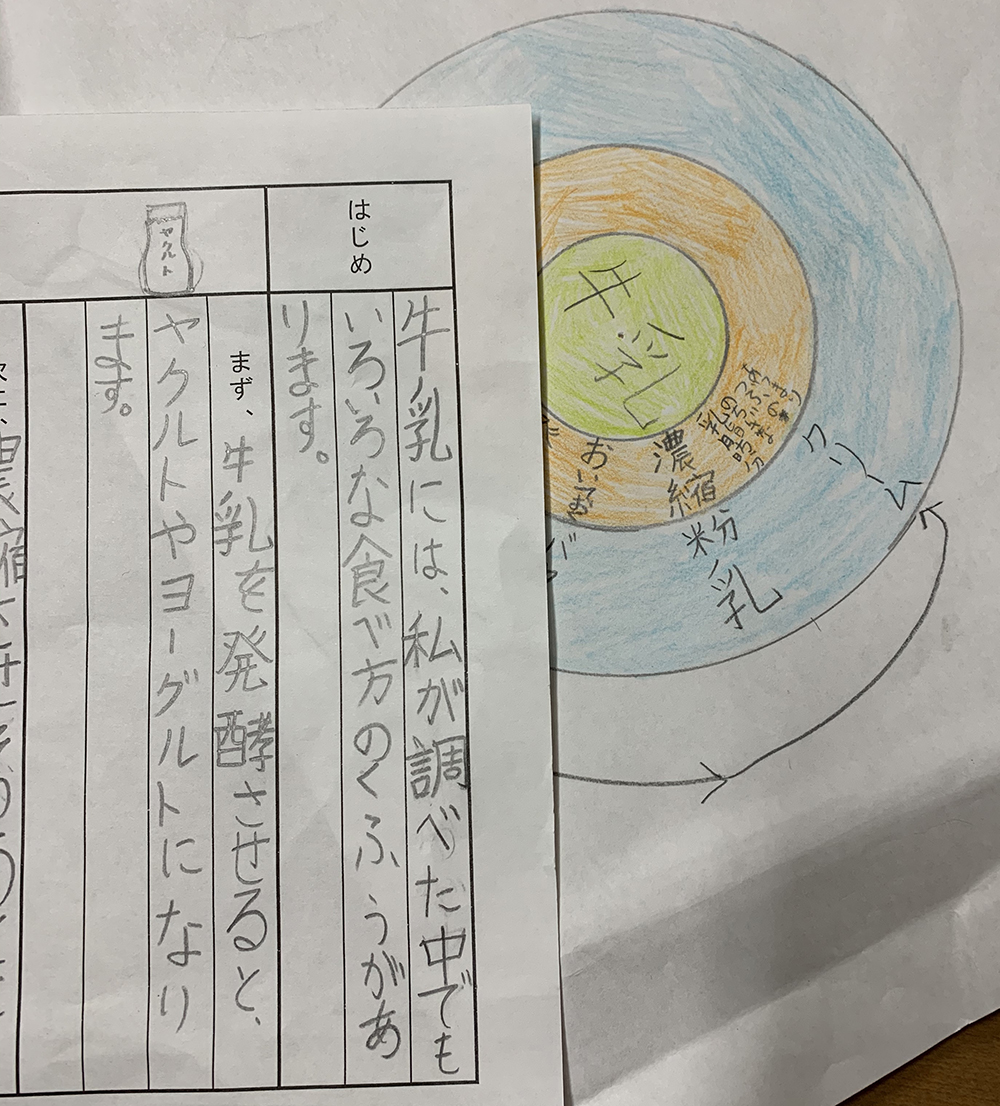 はじめ
牛乳には、私が調べた中でも
いろいろな食べ方のくふうがあ
ります。
ヤクルト
まず、牛乳を発酵させると、
ヤクルトやヨーグルトになり
ます。
牛乳
クリーム
濃縮
粉
乳
おいて